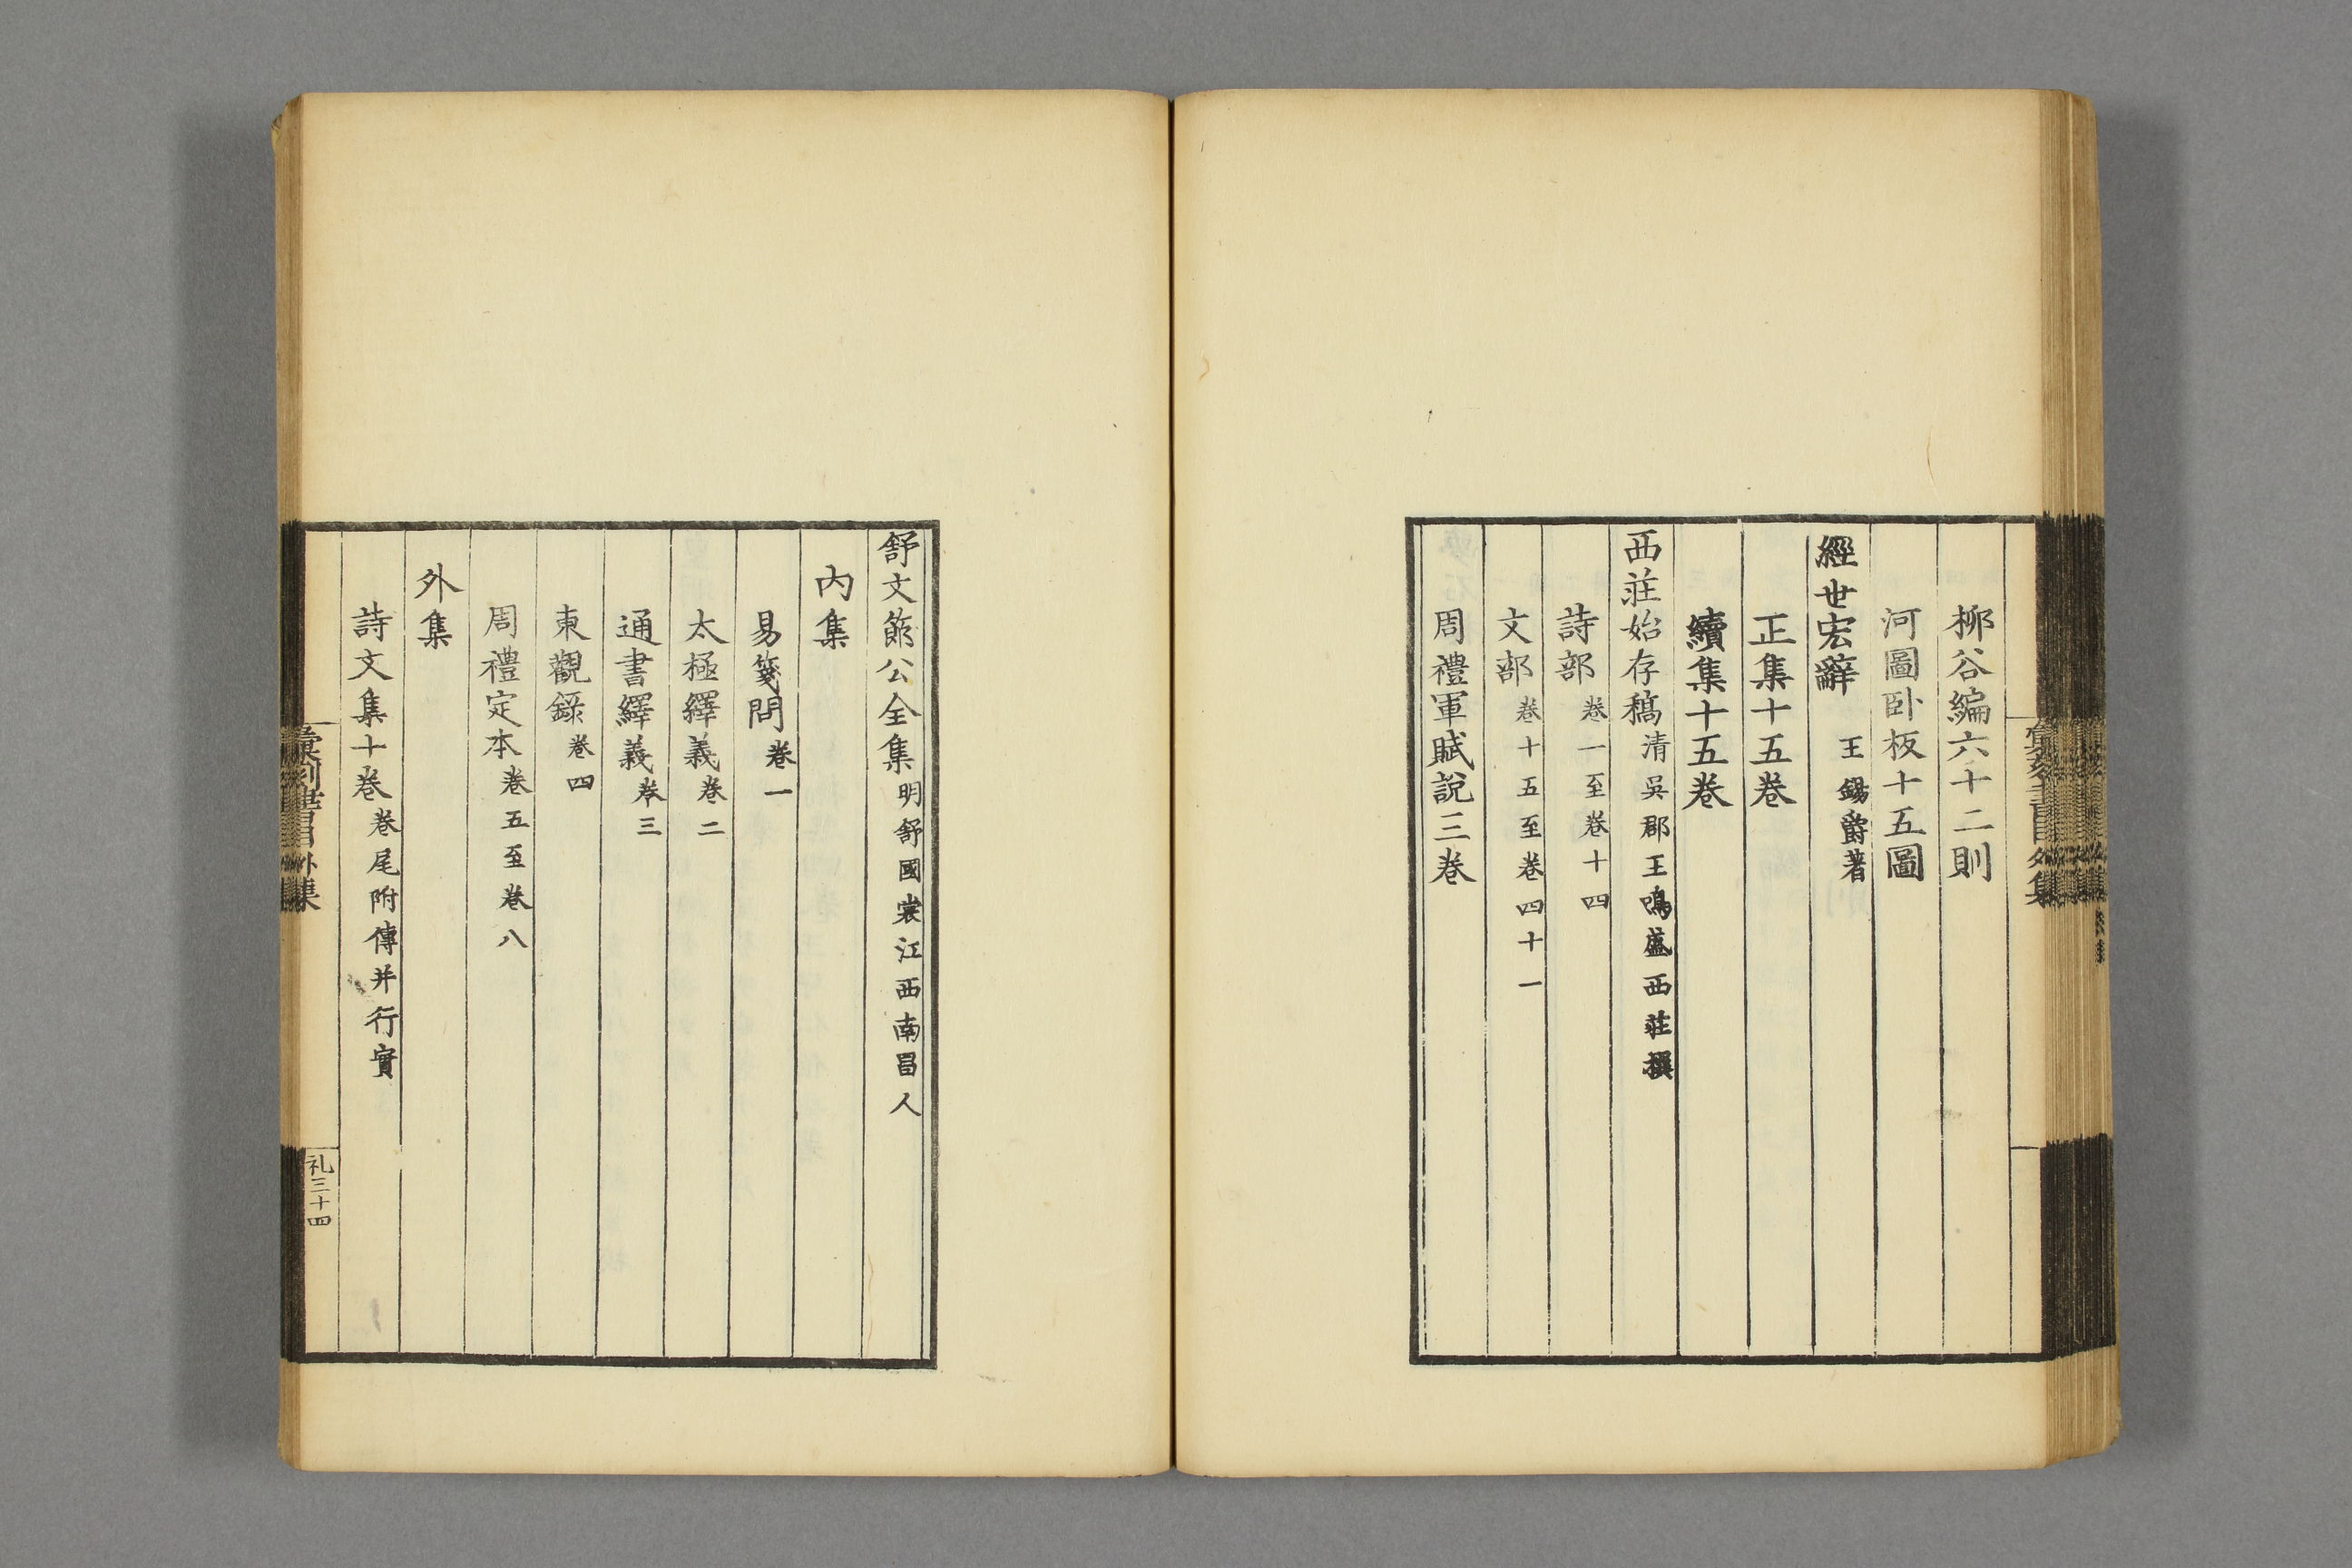 柳谷編六十二則
河圖卧板十五圖
經世宏辭 王錫爵著
正集十五卷
續集十五卷
西莊始存稿 清吳郡王鳴盛西莊撰
詩部 卷一至卷十四
文部 卷十五至卷四十一
周禮軍賦說三卷
舒文節公全集 明舒國裳江西南昌人
內集
易箋問 卷一
太極繹義 卷二
通書繹義 卷三
東觀錄 卷四
周禮定本 卷五至卷八
外集
詩文集十卷 卷尾附傳并行實
彙刻書目外集
礼三十四